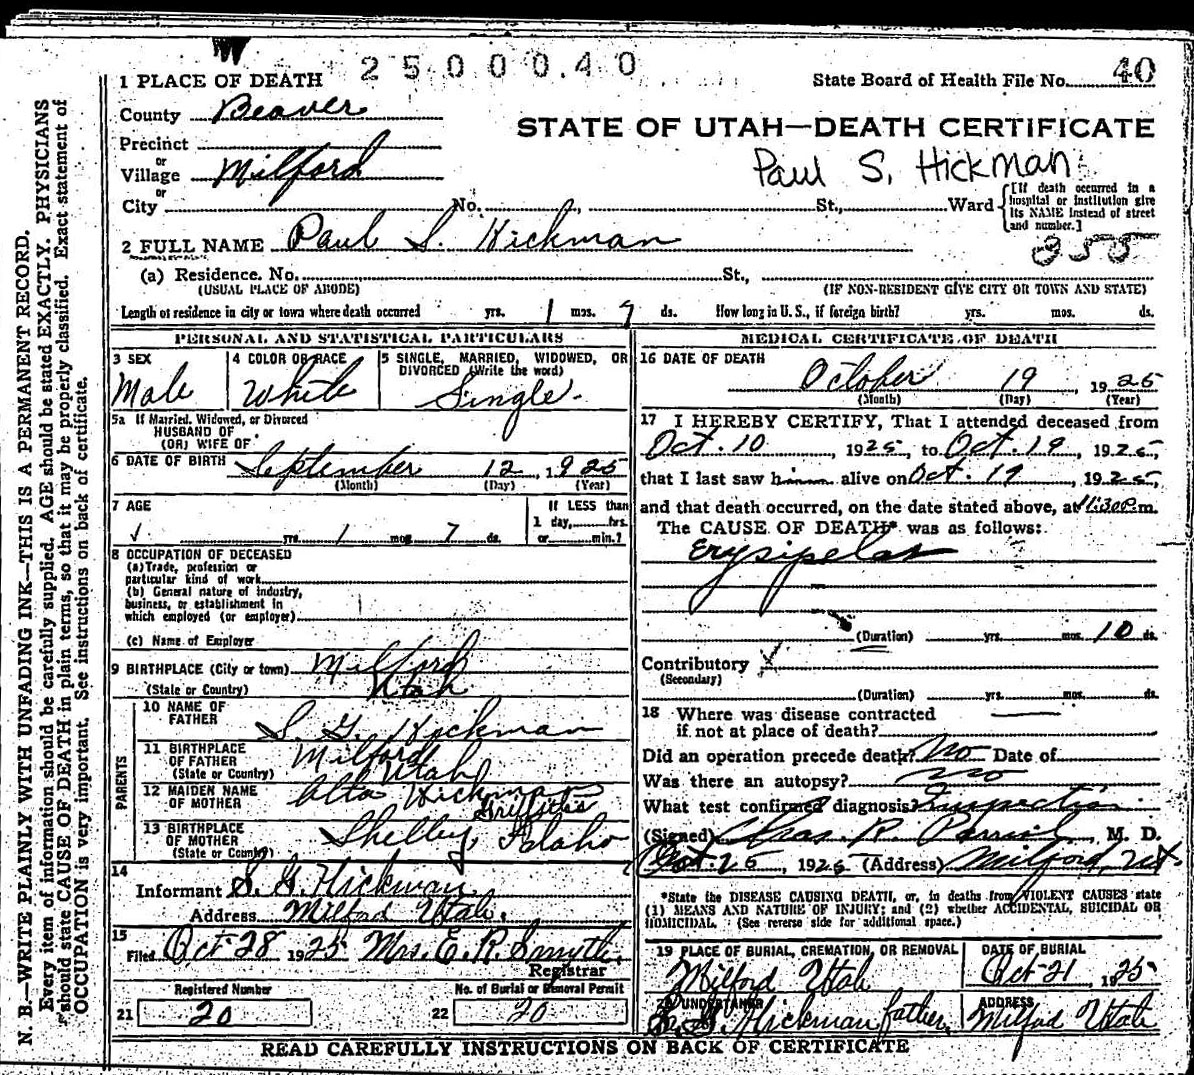 2500040
1 PLACE OF DEATH
State Board of Health File No. 40
County Beaver
STATE OF UTAH—DEATH CERTIFICATE
Precinct
or
Village Milford
Paul S. Hickman
or
City No. St., Ward
[If death occurred in a
hospital or institution give
its NAME instead of street
and number.]
2 FULL NAME Paul S. Hickman
355
(a) Residence. No. St.,
(USUAL PLACE OF ABODE) (IF NON-RESIDENT GIVE CITY OR TOWN AND STATE)
Length of residence in city or town where death occurred yrs. 1 mos. 7 ds. How long in U.S., if foreign birth? yrs. mos. ds.
PERSONAL AND STATISTICAL PARTICULARS
3 SEX
Male
4 COLOR OR RACE
White
5 SINGLE, MARRIED, WIDOWED, OR
DIVORCED (Write the word)
Single.
5a If Married, Widowed, or Divorced
HUSBAND OF
(OR) WIFE OF
6 DATE OF BIRTH September 12, 1925
(Month) (Day) (Year)
7 AGE
yrs. 1 mos. 7 ds.
If LESS than
1 day, hrs.
or min.?
8 OCCUPATION OF DECEASED
(a) Trade, profession or
particular kind of work
(b) General nature of industry,
business, or establishment in
which employed (or employer)
(c) Name of Employer
9 BIRTHPLACE (City or town) Milford
(State or Country) Utah
PARENTS
10 NAME OF
FATHER S. G. Hickman
11 BIRTHPLACE
OF FATHER Milford
(State or Country) Utah
12 MAIDEN NAME
OF MOTHER Alta Hickman
Griffiths
13 BIRTHPLACE
OF MOTHER Shelley, Idaho
(State or Country)
14
Informant S. G. Hickman
Address Milford Utah.
15
Filed Oct 28 1925 Mrs. E. R. Smyth.
Registrar
Registered Number No. of Burial or Removal Permit
21 20 22 20
MEDICAL CERTIFICATE OF DEATH
16 DATE OF DEATH
October 19, 1925
(Month) (Day) (Year)
17 I HEREBY CERTIFY, That I attended deceased from
Oct. 10, 1925, to Oct. 19, 1925,
that I last saw him alive on Oct. 19, 1925,
and that death occurred, on the date stated above, at 11:30 P.m.
The CAUSE OF DEATH* was as follows:
Erysipelas
(Duration) yrs. mos. 10 ds.
Contributory
(Secondary)
(Duration) yrs. mos. ds.
18 Where was disease contracted
if not at place of death?
Did an operation precede death? No Date of
Was there an autopsy? no
What test confirmed diagnosis? Inspection
(Signed) Chas. R. M. D.
Oct. 25, 1925 (Address) Milford, Ut.
*State the DISEASE CAUSING DEATH, or, in deaths from VIOLENT CAUSES state
(1) MEANS AND NATURE OF INJURY; and (2) whether ACCIDENTAL, SUICIDAL OR
HOMICIDAL. (See reverse side for additional space.)
19 PLACE OF BURIAL, CREMATION, OR REMOVAL
Milford Utah
DATE OF BURIAL
Oct 21, 1925
20 UNDERTAKER
S. G. Hickman father.
ADDRESS
Milford Utah
READ CAREFULLY INSTRUCTIONS ON BACK OF CERTIFICATE
N. B.—WRITE PLAINLY WITH UNFADING INK—THIS IS A PERMANENT RECORD.
Every item of information should be carefully supplied. AGE should be stated EXACTLY. PHYSICIANS
should state CAUSE OF DEATH in plain terms, so that it may be properly classified. Exact statement of
OCCUPATION is very important. See instructions on back of certificate.